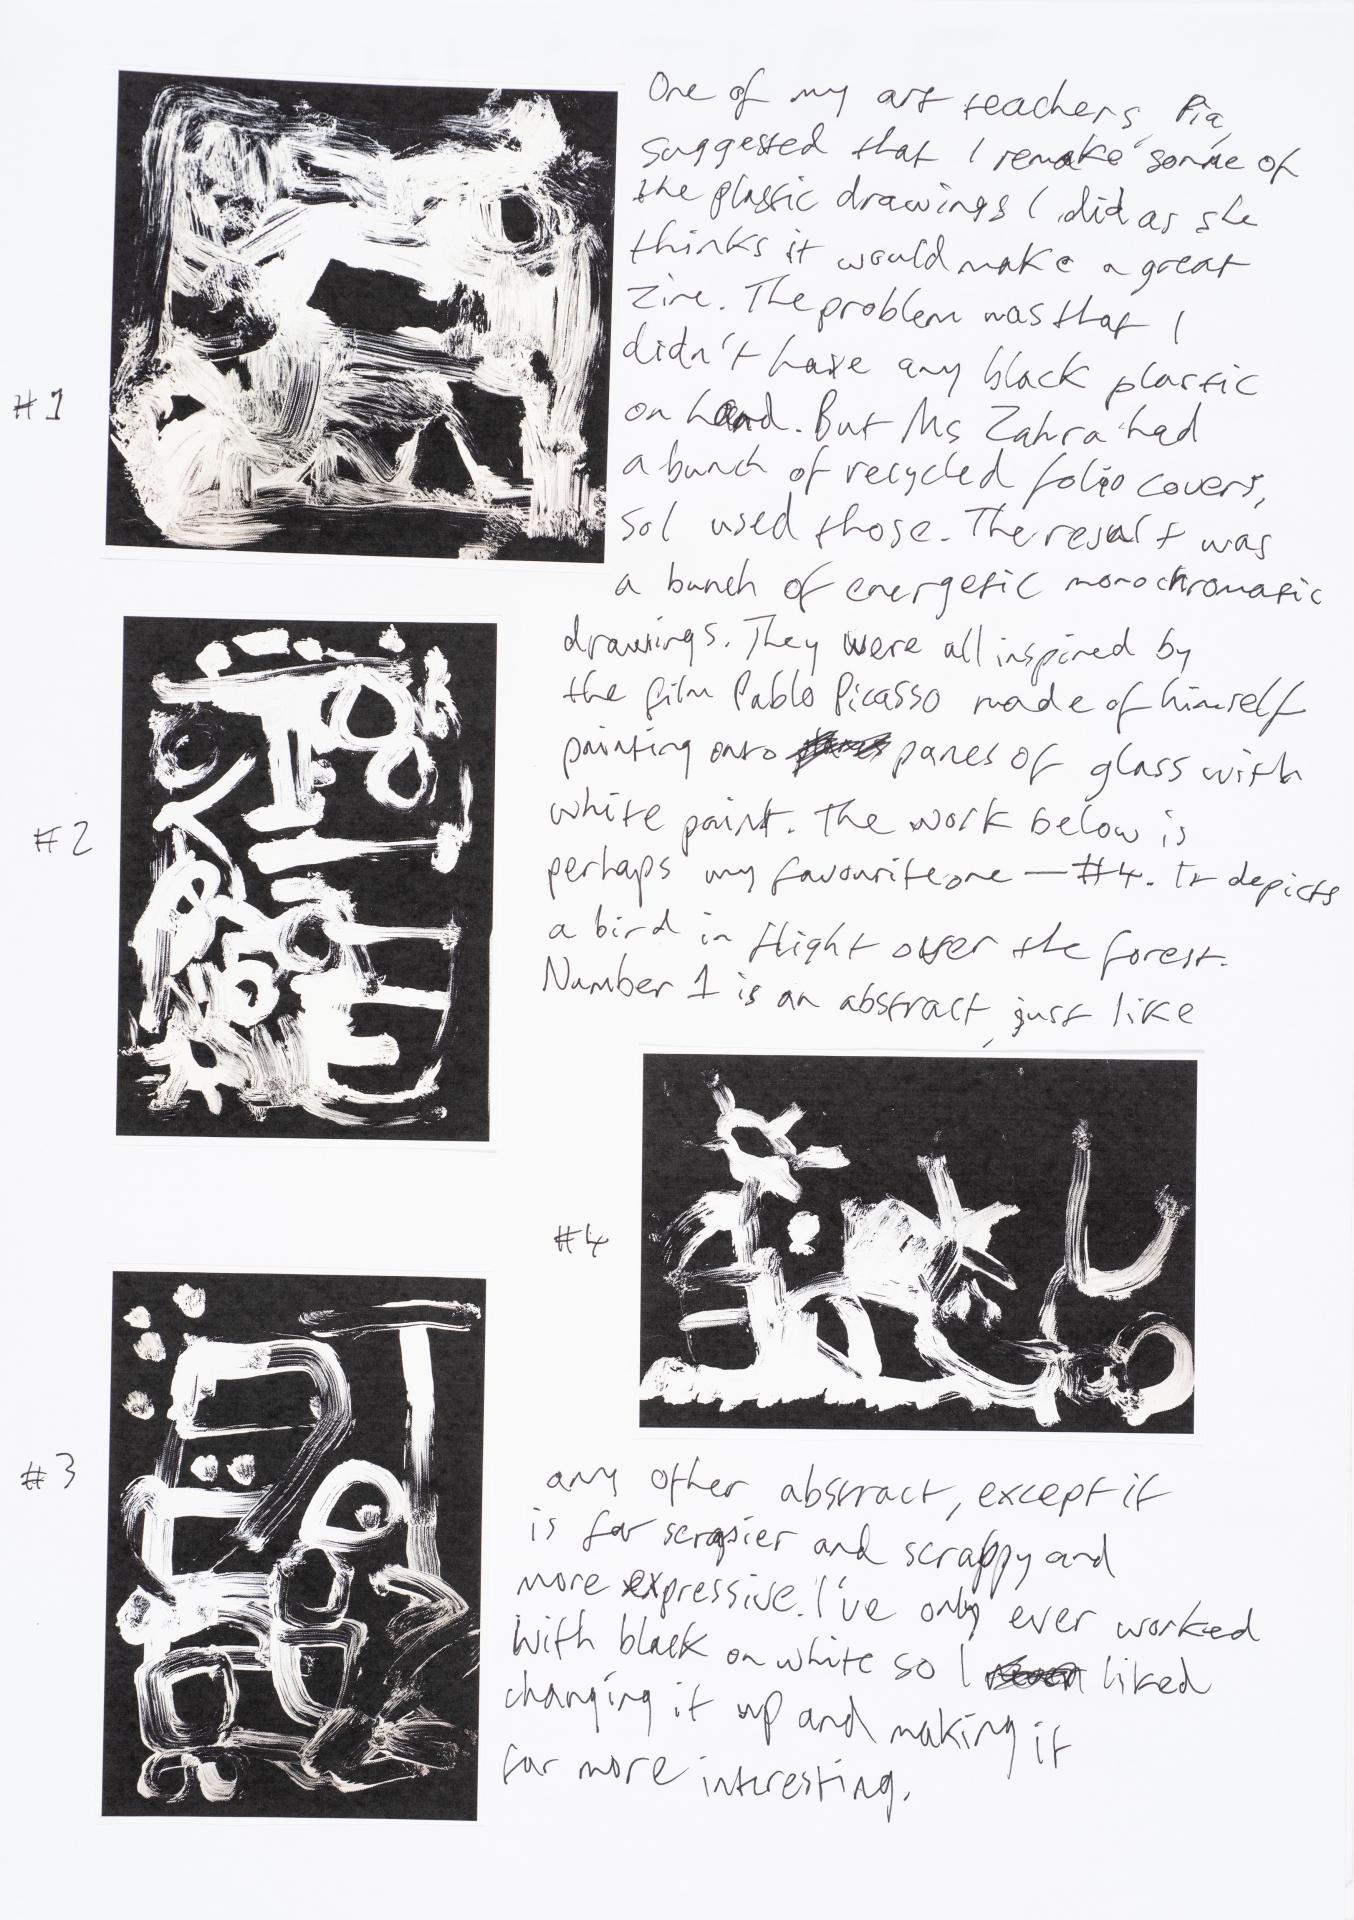 One of my art teachers, Pia,
suggested that I remake some of
the plastic drawings I did as she
thinks it would make a great
zine. The problem was that I
didn't have any black plastic
on hand. But Ms Zahra had
a bunch of recycled folio covers,
so I used those. The result was
a bunch of energetic monochromatic
drawings. They were all inspired by
the film Pablo Picasso made of himself
painting onto panes of glass with
white paint. The work below is
perhaps my favourite one — #4. It depicts
a bird in flight over the forest.
Number 1 is an abstract, just like
any other abstract, except it
is far scrapier and scrappy and
more expressive. I've only ever worked
with black on white so I liked
changing it up and making it
far more interesting.
#1
#2
#3
#4